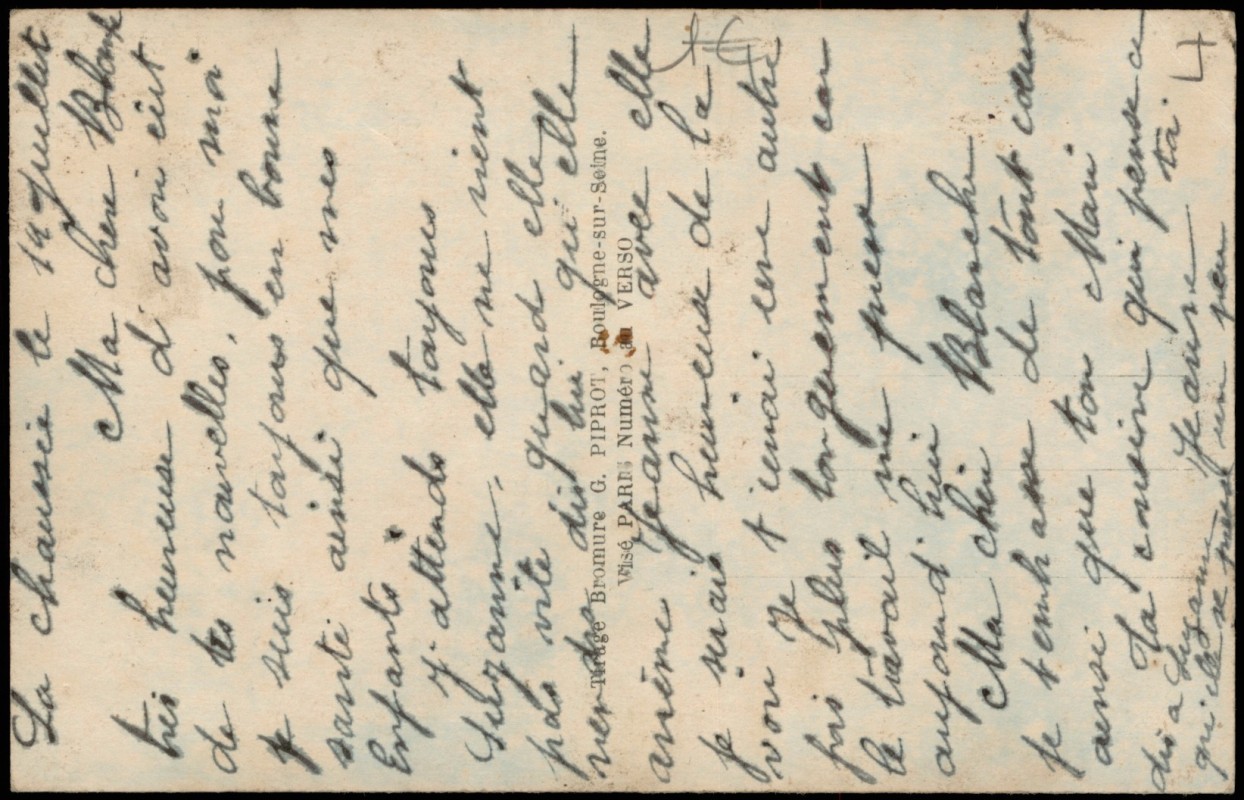 La chaussée le 19 Juillet
Ma chere Blanche
très heureuse d'avoir eût
de tes nouvelles, pour moi
je suis toujours en bonne
santé ainsi que mes
Enfants.
J'attends toujours
Suzanne, elle ne vient
pas vite quand elle
viendra dis lui qu'elle
amène Jeanne avec elle
je serais heureuse de la
voir Je t'écrirai une autre
fois plus longuement car
le travail me presse
aujourd'hui
Ma chère Blanche
je tembrasse de tout cœur
ainsi que ton Mari
Ta cousine qui pense a toi
Jeanne
dis a Suzanne
qu'elle se presse un peu
Tirage Bromure G. PIPROT, Boulogne-sur-Seine.
Visé PARIS Numéro au VERSO
4